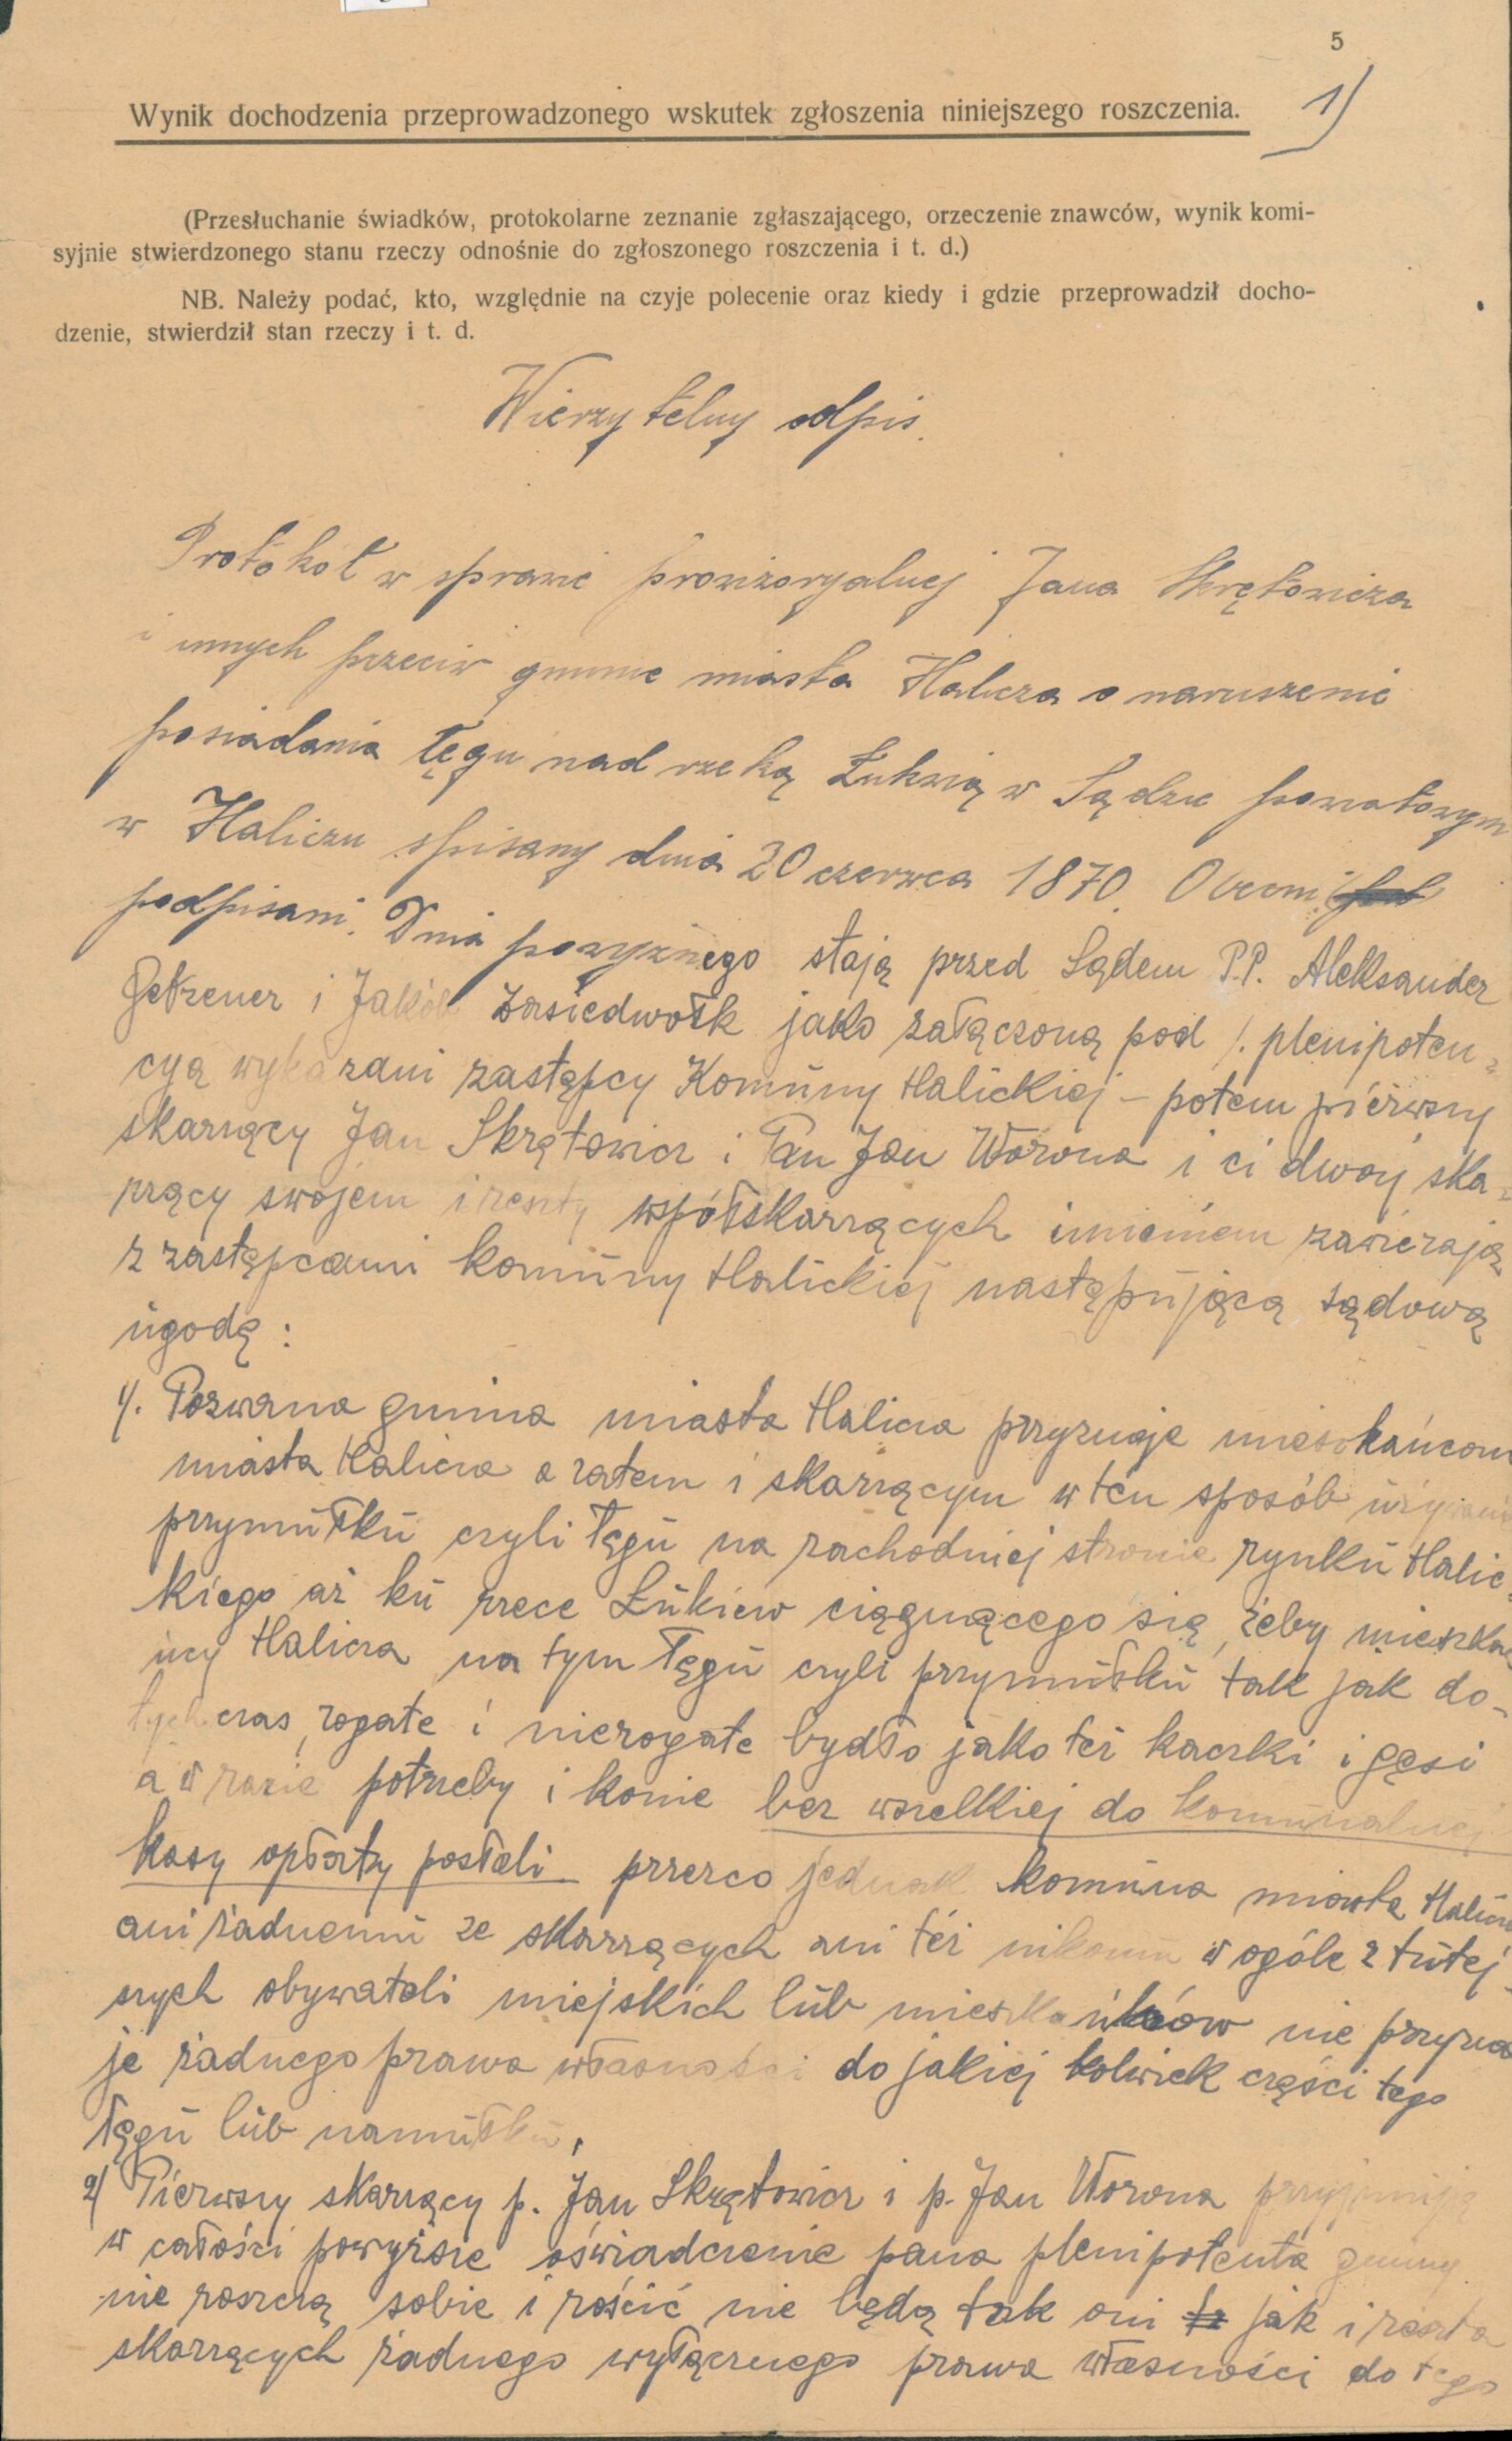 5
1)
Wynik dochodzenia przeprowadzonego wskutek zgłoszenia niniejszego roszczenia.
(Przesłuchanie świadków, protokolarne zeznanie zgłaszającego, orzeczenie znawców, wynik komi-
syjnie stwierdzonego stanu rzeczy odnośnie do zgłoszonego roszczenia i t. d.)
NB. Należy podać, kto, względnie na czyje polecenie oraz kiedy i gdzie przeprowadził docho-
dzenie, stwierdził stan rzeczy i t. d.
Wierzytelny odpis.
Protokół w sprawie prowizoryalnej Jana Skrętowicza
i innych przeciw gminie miasta Halicza o naruszenie
posiadania łęgu nad rzeką Łukwią w Sądzie powiatowym
w Haliczu spisany dnia 20 czerwca 1870. Obecni
podpisani. Dnia powyższego stają przed Sądem P.P. Aleksander
i Jakób jako załączoną pod /. plenipoten-
cyą wykazani zastępcy Komuny Halickiej – potem pierwszy
skarzący Jan Skrętowicz i Pan Jan Worona i ci dwoj ska-
rzący swojem i reszty współskarzących imieniem zawierają
z zastępcami komuny Halickiej następującą sądową
ugodę:
1/. Pozwana gmina miasta Halicza przyznaje mieszkańcom
miasta Halicza a zatem i skarzącym w ten sposób używanie
przymułku czyli łęgu na zachodniej stronie rynku Halic-
kiego aż ku rzece Łukiew ciągnącego się, żeby mieszkań-
ncy Halicza na tym łęgu czyli przymułku tak jak do-
tychczas, rogate i nierogate bydło jako też kaczki i gęsi
a w razie potrzeby i konie bez wszelkiej do komunalnej
kasy opłaty posłali przezco jednak komuna miasta Halicza
ani żadnemu ze skarzących ani też nikomu w ogóle z tutej-
szych obywateli miejskich lub mieszkańców nie przyzna
je żadnego prawa własności do jakiej kolwiek części tego
łęgu lub namułku.
2/ Pierwszy skarzący p. Jan Skrętowicz i p. Jan Worona przyjmują
w całości powyższe oświadczenie pana plenipotenta gminy
nie roszczą sobie i rościć nie będą tak oni jak i reszta
skarzących żadnego wyłącznego prawa własności do tego